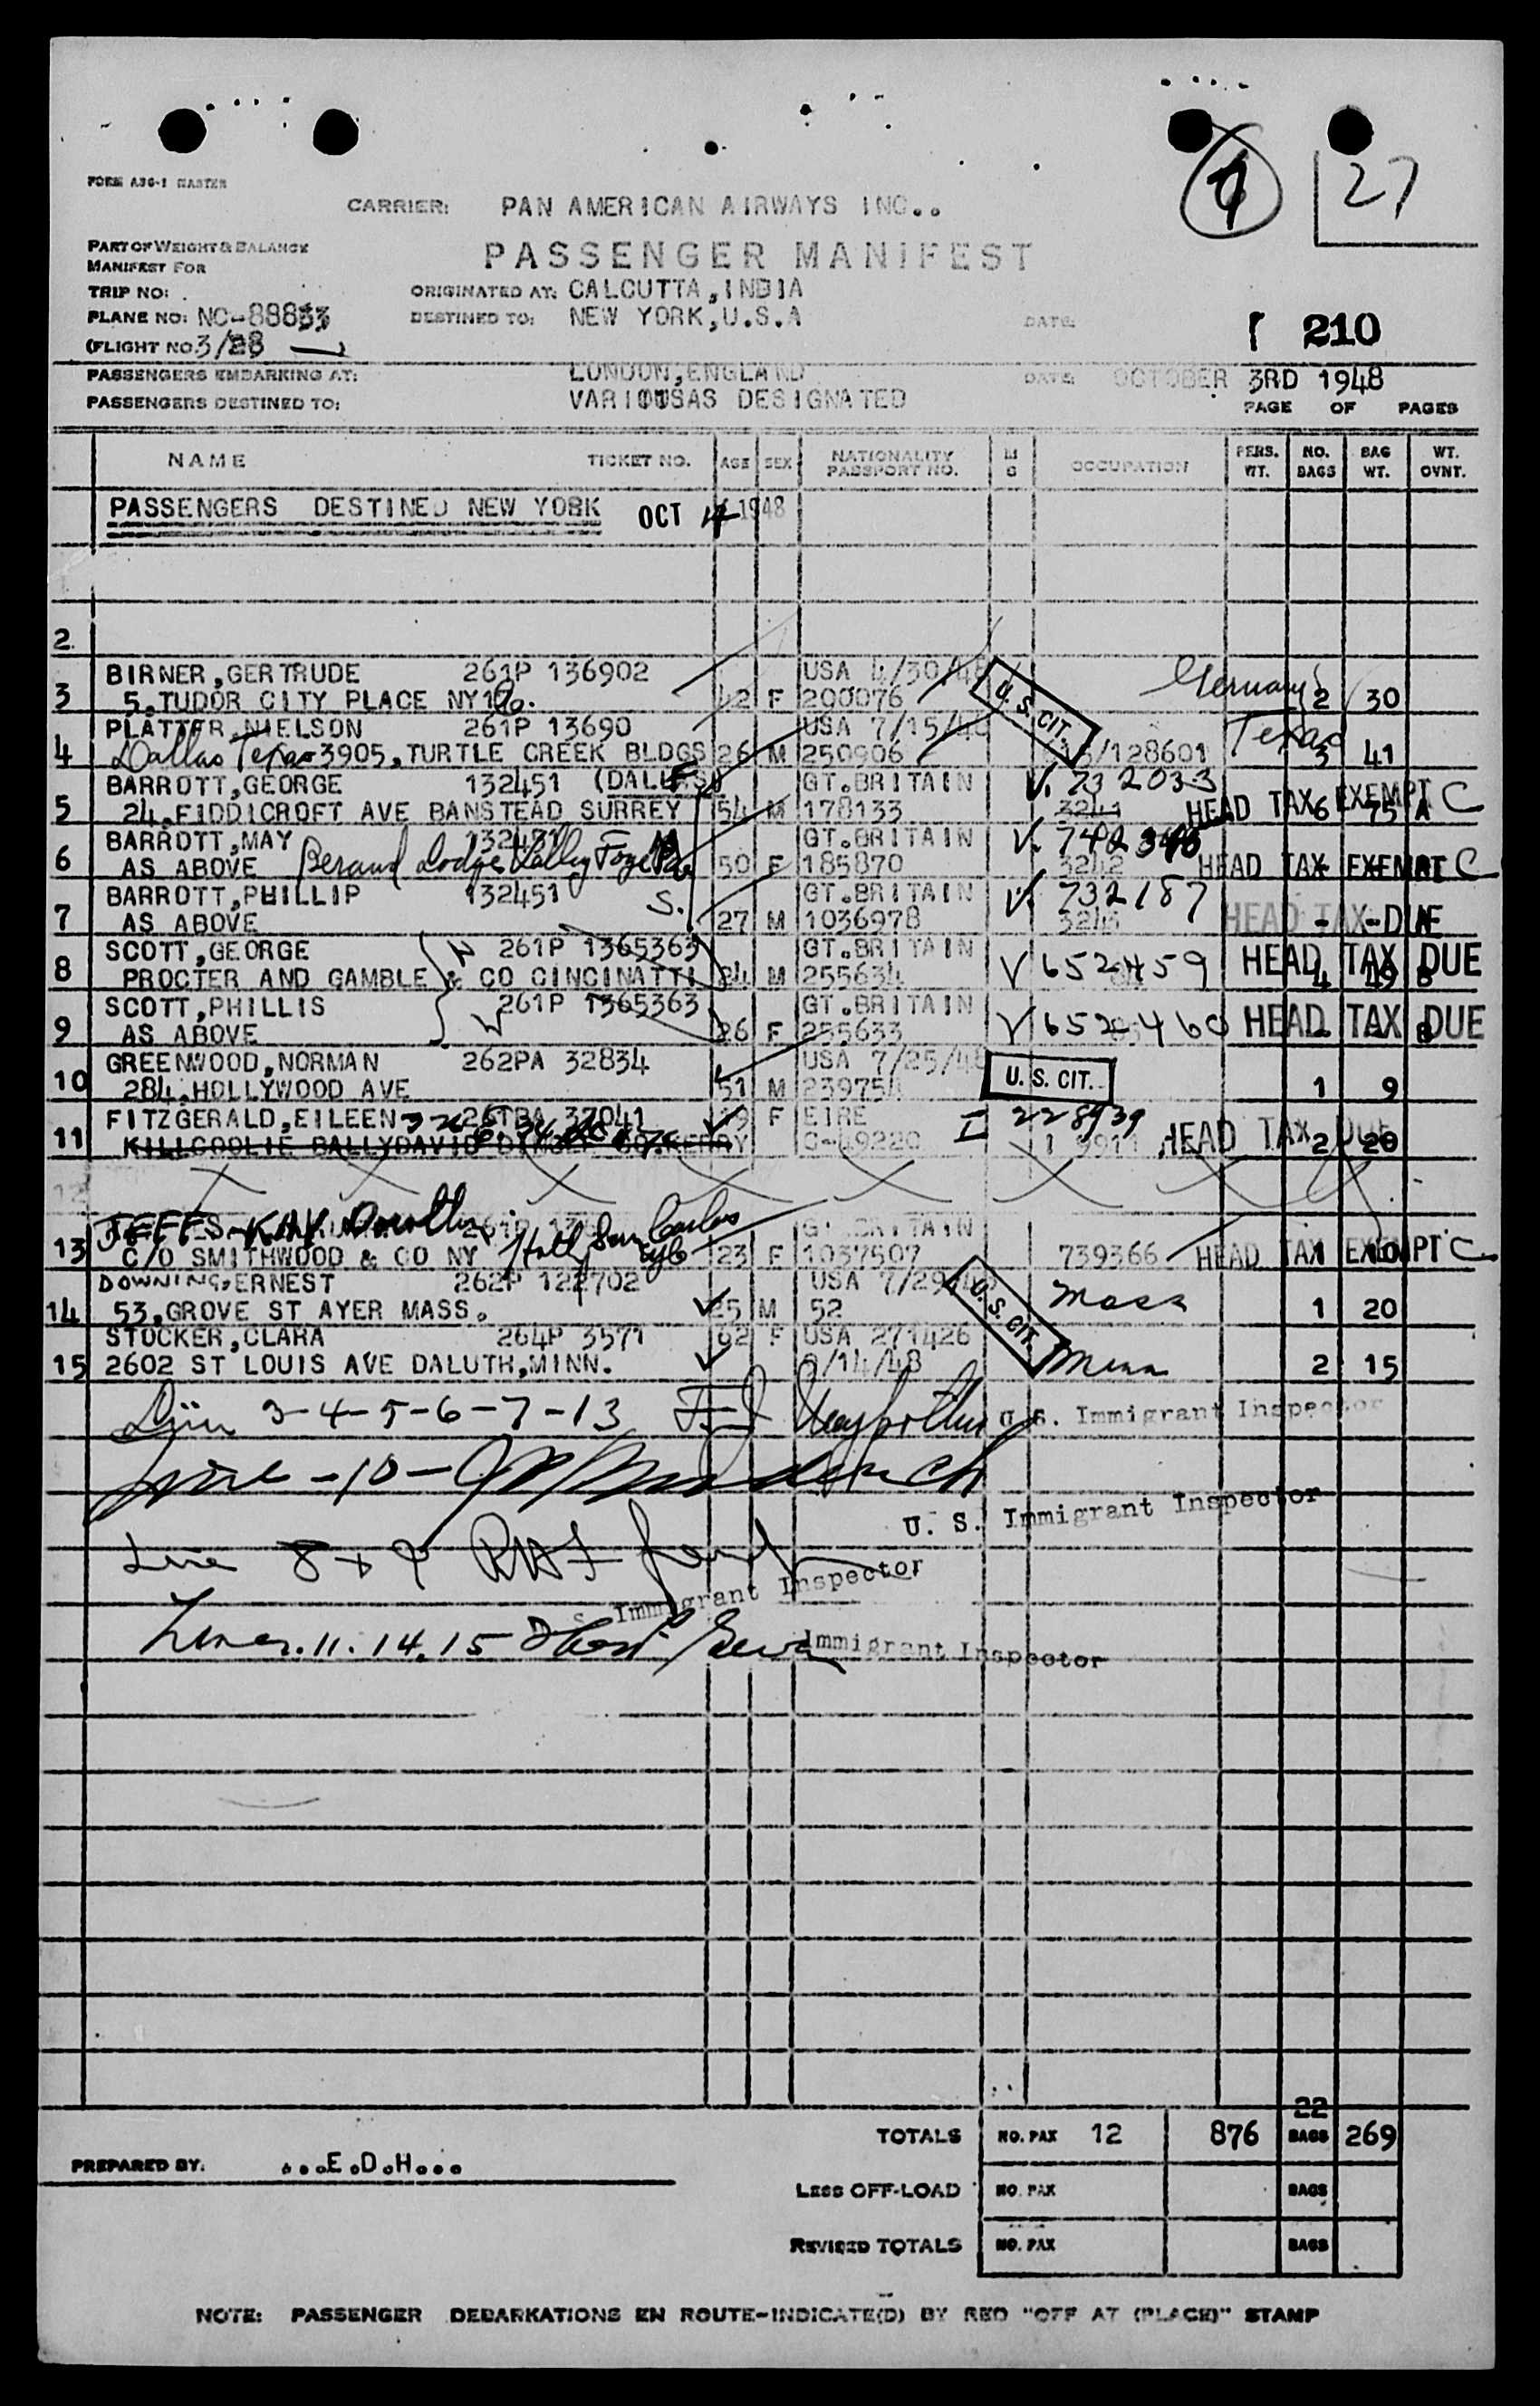 27
FORM A36-1 MASTER
CARRIER: PAN AMERICAN AIRWAYS INC..
PART OF WEIGHT & BALANCE
MANIFEST FOR
PASSENGER MANIFEST
TRIP NO: ORIGINATED AT: CALCUTTA, INDIA
PLANE NO: NC-88833 DESTINED TO: NEW YORK, U.S.A DATE: 210
(FLIGHT NO. 3/28
PASSENGERS EMBARKING AT: LONDON, ENGLAND DATE: OCTOBER 3RD 1948
PASSENGERS DESTINED TO: VARIOUSAS DESIGNATED PAGE OF PAGES
NAME TICKET NO. AGE SEX NATIONALITY PASSPORT NO. OCCUPATION PERS. WT. NO. BAGS BAG WT. WT. OVNT.
PASSENGERS DESTINED NEW YORK OCT 4 1948
2
BIRNER, GERTRUDE 261P 136902 USA 4/30/48
3 5, TUDOR CITY PLACE NY 42 F 200076 U. S. CIT. Germany 2 30
PLATTER, NIELSON 261P 13690 USA 7/15/48
4 Dallas Texas 3905, TURTLE CREEK BLDGS 26 M 250906 /128601 Texas 3 41
BARROTT, GEORGE 132451 GT. BRITAIN V. 732033
5 24, FIDDICROFT AVE BANSTEAD SURREY 54 M 178133 3241 HEAD TAX EXEMPT C 6 75 A
BARROTT, MAY 132451 GT. BRITAIN V.
6 AS ABOVE Lodge Valley Forge Pa 50 F 185870 3242 HEAD TAX EXEMPT C
BARROTT, PHILLIP 132451 GT. BRITAIN V. 732187
7 AS ABOVE 27 M 1036978 HEAD TAX DUE
SCOTT, GEORGE 261P 1365363 GT. BRITAIN
8 PROCTER AND GAMBLE & CO CINCINATTI 24 M 255634 V 652459 HEAD TAX DUE 4 49 B
SCOTT, PHILLIS 261P 1365363 GT. BRITAIN
9 AS ABOVE 26 F 255633 V 652460 HEAD TAX DUE B
GREENWOOD, NORMAN 262PA 32834 USA 7/25/48
10 284, HOLLYWOOD AVE 51 M U. S. CIT. 1 9
FITZGERALD, EILEEN F EIRE I 228939
11 KILLCOOLIE BALLYDAVID KERRY C-49220 HEAD TAX DUE 2 20
JEFFES-KAY GT. BRITAIN
13 C/O SMITHWOOD & CO NY 23 F 1037507 739366 HEAD TAX EXEMPT C 1 10
DOWNING, ERNEST 262P 122702 USA 7/29
14 53, GROVE ST AYER MASS. 25 M 52 U. S. CIT. Mass 1 20
STOCKER, CLARA 264P 3571 62 F USA 271426
15 2602 ST LOUIS AVE DALUTH, MINN. /14/48 Minn 2 15
3-4-5-6-7-13 U. S. Immigrant Inspector
-10-
U. S. Immigrant Inspector
Line 8 + 9
Immigrant Inspector
Lines. 11. 14. 15 Immigrant Inspector
22
TOTALS NO. PAX 12 876 BAGS 269
PREPARED BY: ...E.D.H...
LESS OFF-LOAD NO. PAX BAGS
REVISED TOTALS NO. PAX BAGS
NOTE: PASSENGER DEBARKATIONS EN ROUTE-INDICATE(D) BY RED "OFF AT (PLACE)" STAMP